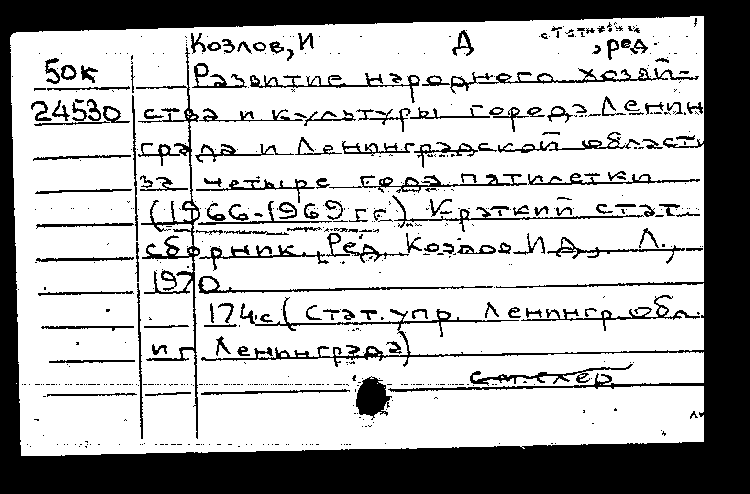 Козлов, И Д , ред.
50к Развитие народного хозяй-
24530 ства и культуры города Ленин
града и Ленинградской области
за четыре года пятилетки
(1966-1969 гг). Краткий стат.
сборник. Ред. Козлов И Д., Л.,
1970.
174с. (Стат. упр. Ленингр. обл.
и г. Ленинграда)